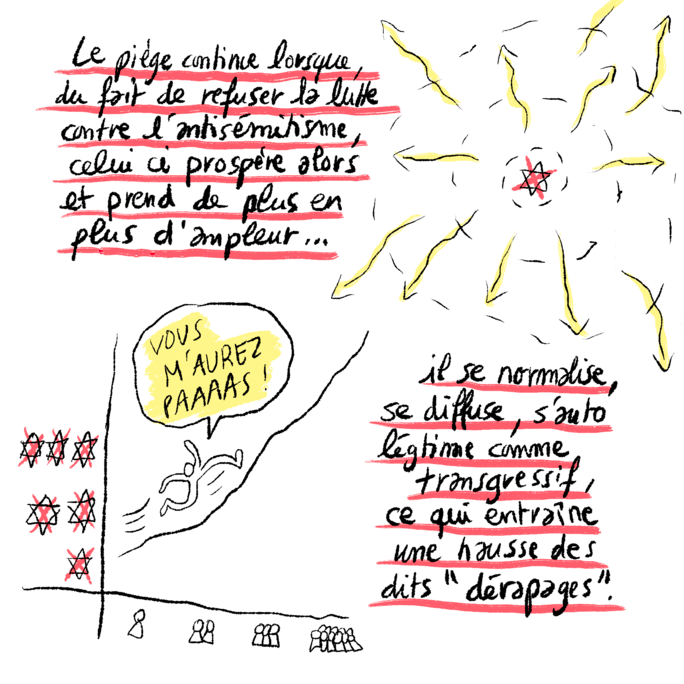 Le piège continue lorsque,
du fait de refuser la lutte
contre l'antisémitisme,
celui ci prospère alors
et prend de plus en
plus d'ampleur...
VOUS
M'AUREZ
PAAAAS !
il se normalise,
se diffuse, s'auto
légtime comme
transgressif,
ce qui entraîne
une hausse des
dits "dérapages".